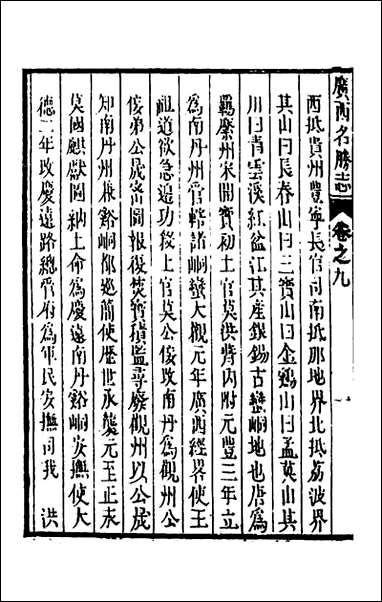 廣西名勝志 卷之九
西抵貴州豐寧長官司南抵那地界北抵荔波界
其山曰長春山曰三寶山曰金鷄山曰孟英山其
川曰青雲溪紅盆江其產銀錫古蠻峒地也唐爲
羈縻州宋開寶初土官莫洪䏿内附元豐三年立
爲南丹州管轄諸峒蠻大觀元年廣西經畧使王
祖道欲急邉功殺土官莫公佞改南丹爲觀州公
佞弟公晟密圖報復焚寳積監尋廢觀州以公晟
知南丹州兼谿峒都巡簡使歷世承襲元至正末
莫國麒獻圖納土命爲慶遠南丹谿峒安撫使大
德二年改慶遠路總管府爲軍民安撫司我 洪